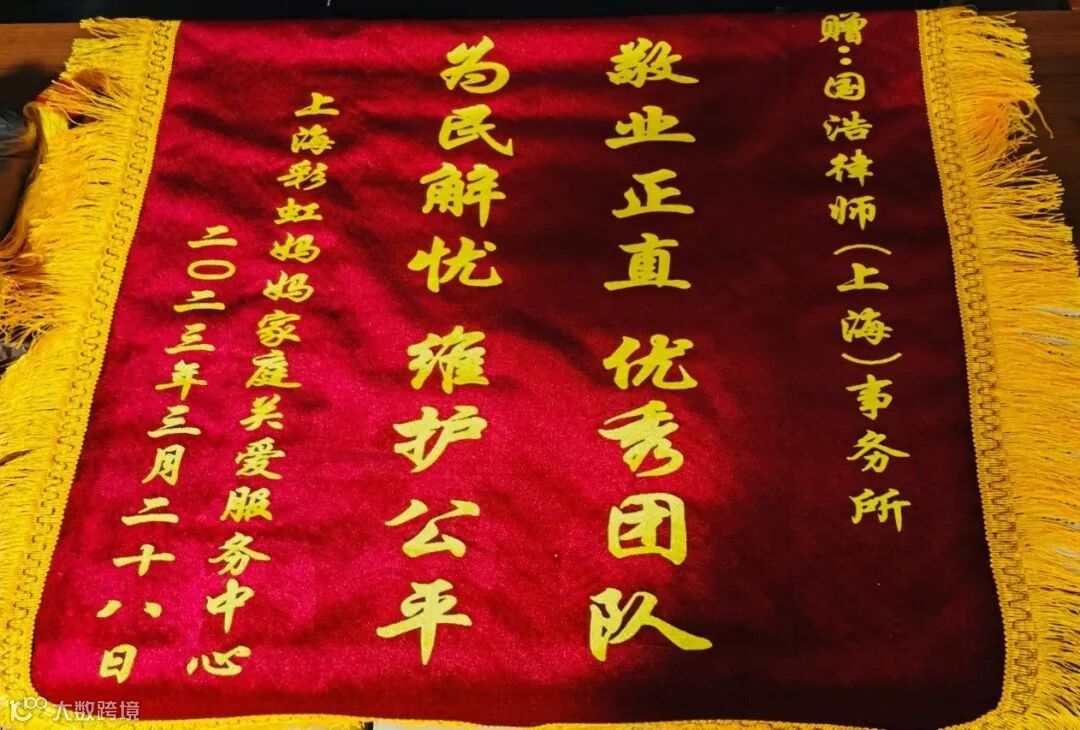 赠：国浩律师（上海）事务所
敬业正直 优秀团队
为民解忧 维护公平
上海彩虹妈妈家庭关爱服务中心
二〇二三年三月二十八日
大数跨境